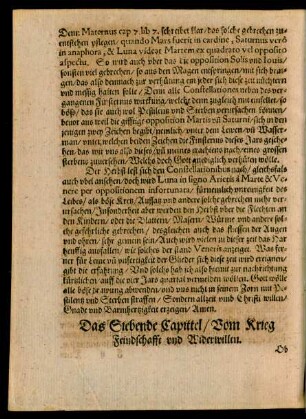 Denn Maternus cap 7. lib 7. schreibet klar/ das solche gebrechen zu
entstehen pflegen/ quando Mars fuerit in cardine, Saturnus verò
in anaphora, & Luna videat Martem ex quadrato vel opposito
aspectu. So wird auch vber das die opposition Solis vnd Iouis/
sonsten viel gebrechen/ so aus dem Magen entspringen/ mit sich brin-
gen/ das also demnach zur verführung ein jeder sich diese zeit nüchtern
vnd messig halten solle/ Denn alle Constellationes neben des ver-
gangenen Finsternus wirckung/ welche denn zugleich mit einfellet/
böß/ das sie auch wol Pestilentz vnd Sterben verursachen können/
benor aus weil die gifftige opposition Martis vnd Saturni/ sich in den
jenigen zwey Zeichen begibt/ nemlich/ vnter dem Lewen vnd Wasser-
man/ vnter welchen beiden Zeichen die Finsternus dieses Jars gesche-
hen/ das wir vns also dieses/ vnd meines erachtens nach/ eines grossen
sterbens zuuersehen/ Welchs doch Gott gnediglich verhüten wölle.
Der Herbst lest sich den Constellationibus nach/ gleichsfals
auch vbel ansehen/ doch wird Luna in signo Arietis à Marte & Ve-
nere per oppositionem infortunata/ fürnemlich vnreinigkeit des
Leibes/ als böse Kretz/ Aussatz vnd andere solche gebrechen mehr ver-
ursachen/ Insonderheit aber werden den Herbst vber die Flechten an
den Kindern/ oder die Blattern/ Masern/ Würme vnd andere sol-
che gefehrliche gebrechen/ desgleichen auch das fliessen der Augen
vnd ohren/ sehr gemein sein/ Auch wird vielen zu dieser zeit das Har
hefftig ausfallen/ wie solches der stand Veneris anzeiget. Was fer-
ner für seuch vnd pusteriigkeit der Glieder sich diese zeit wird ereignen/
gibt die erfahrung/ Vnd solchs hab ich also hiemit zur nachrichtung
kürtzlichen/ auff die vier Jars quartal vermelden wollen. Gott wölle
alle böse straff abwenden/ vnd vns nicht in seinem Zorn mit Pe-
stilentz vnd Sterben straffen/ Sondern allzeit vmb Christi willen/
Gnade vnd Barmhertzigkeit erzeigen/ Amen.
Das Siebende Capittel/ Vom Krieg
Feindschafft vnd Widerwillen.
Ob